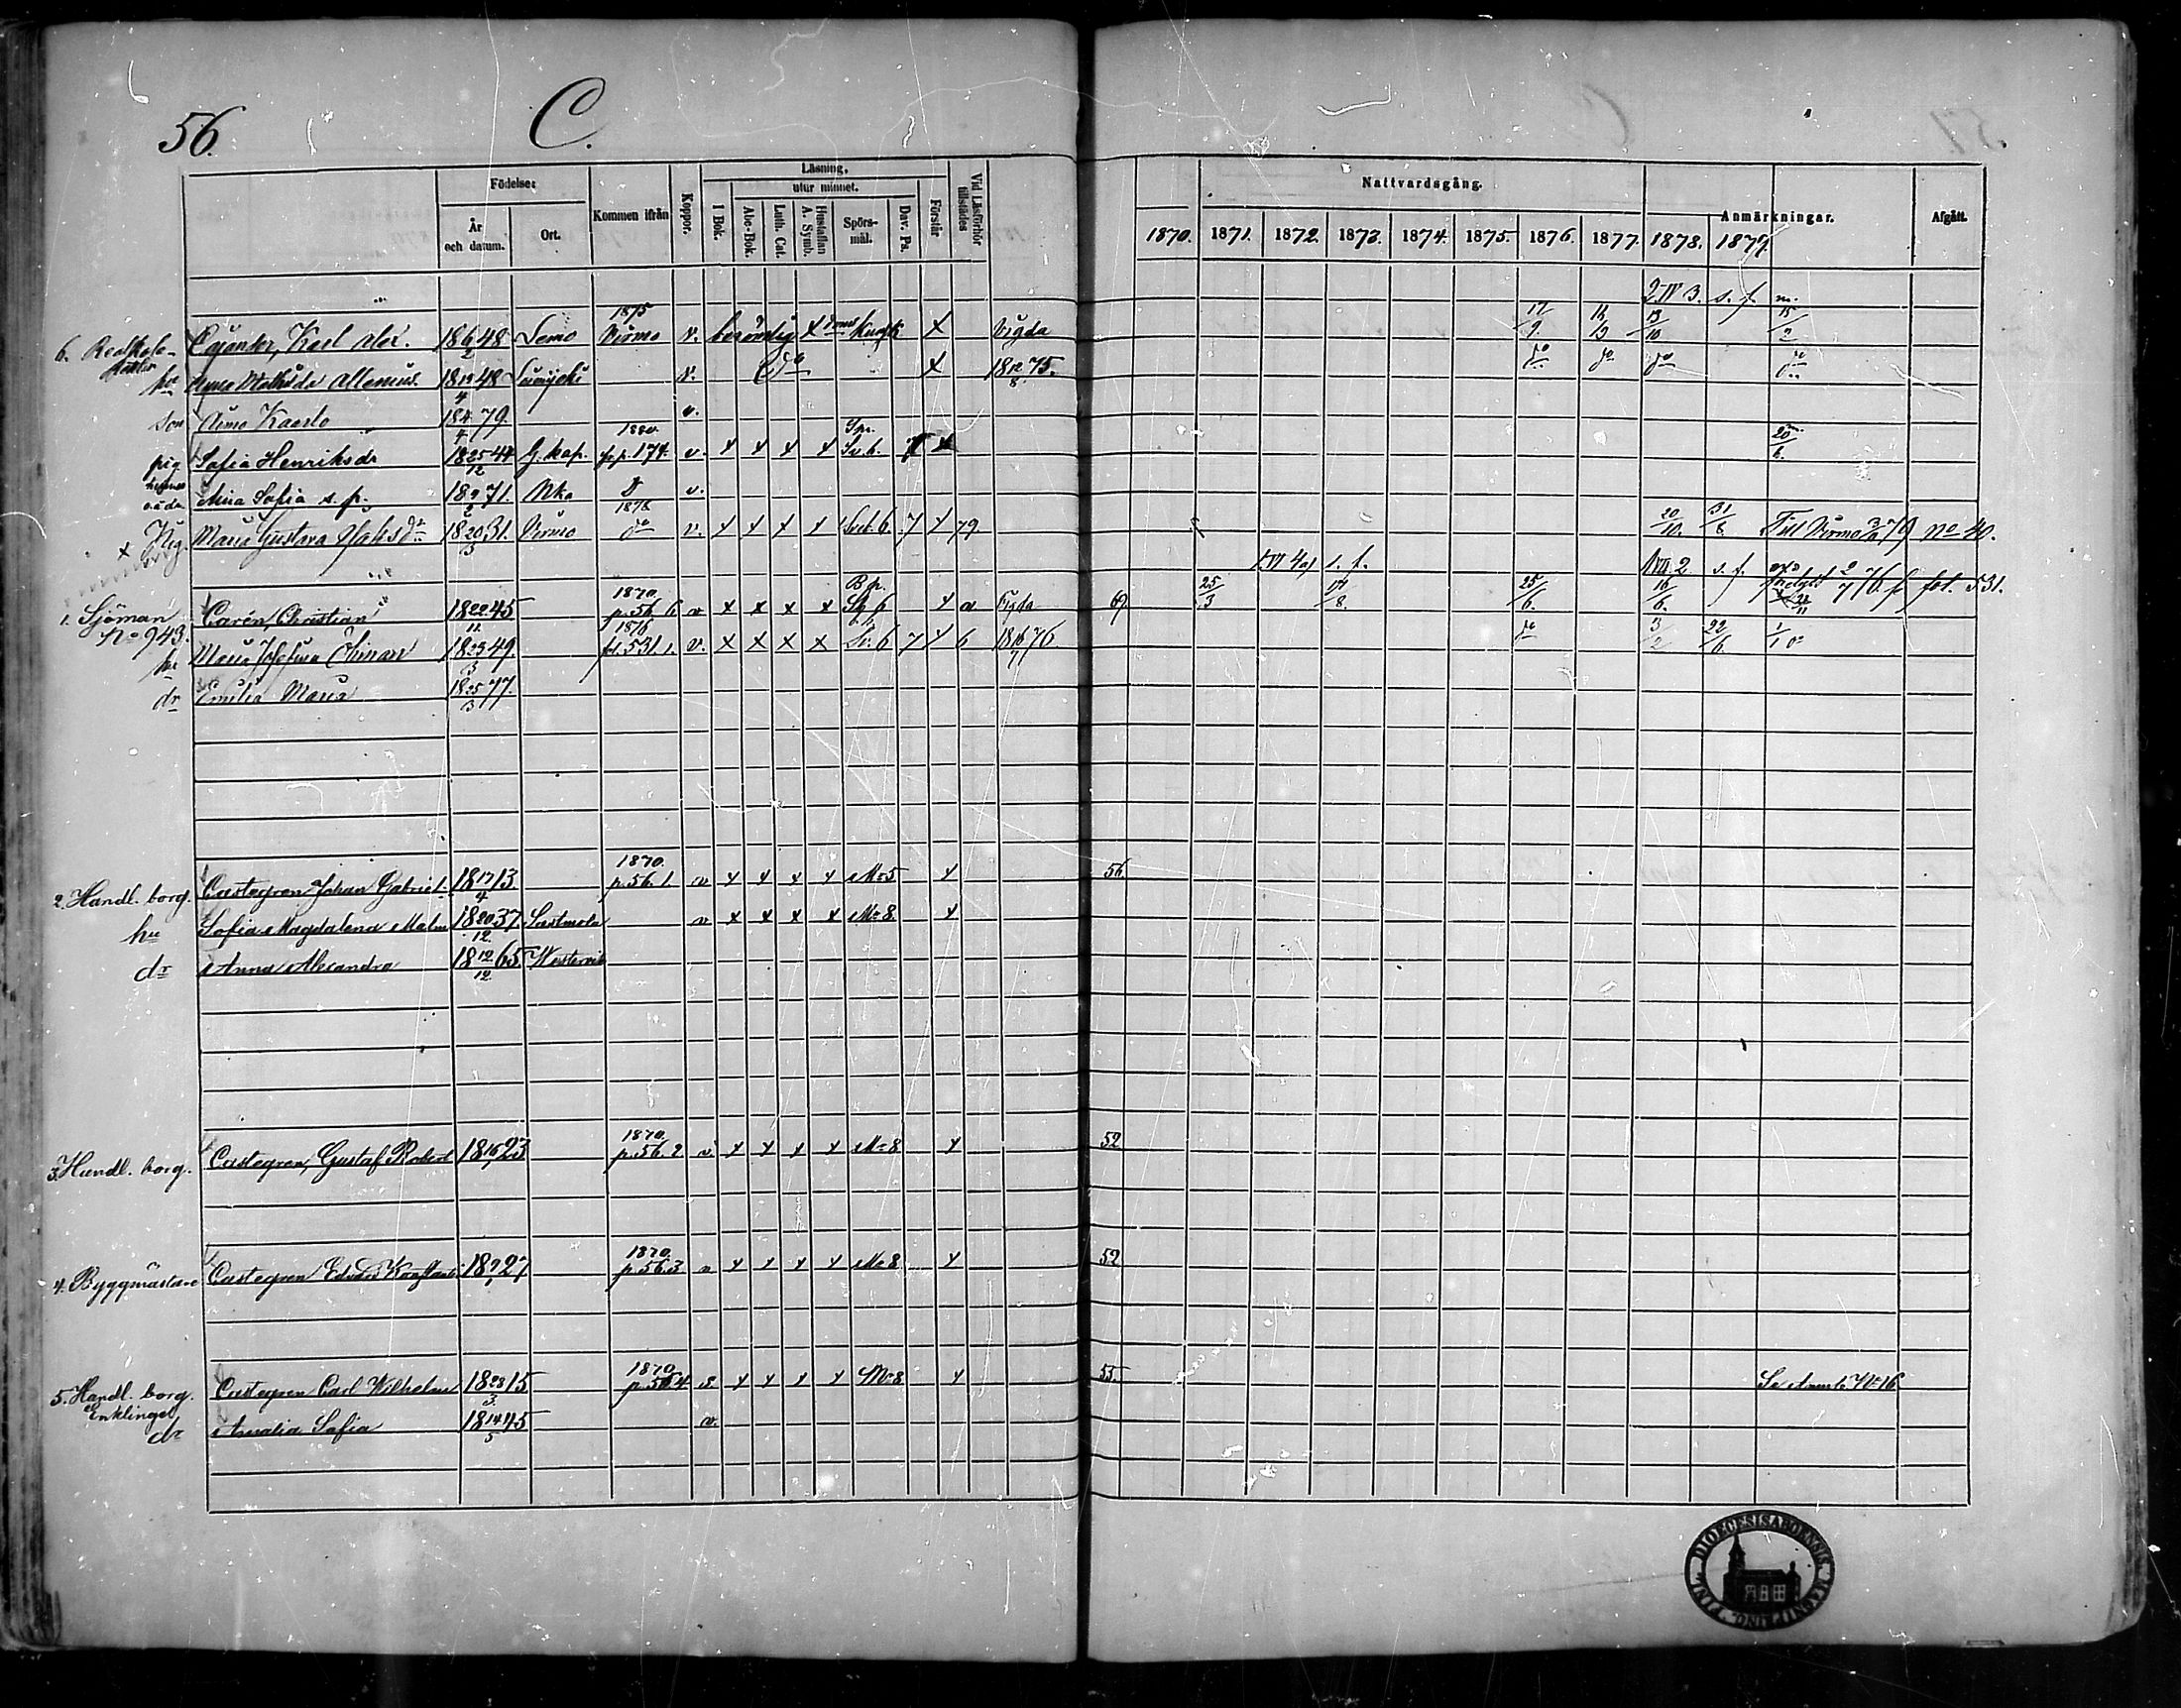 56. C.
Födelse: Kommen ifrån Koppor. Läsning, Vid Läsförhör tillstädes
utur minnet.
År och datum. Ort. I Bok. Abc-Bok. Luth. Cat. Hustaflan A. Symb. Spörsmål. Dav. Ps. Förstår
Nattvardsgång. Anmärkningar. Afgått.
1870. 1871. 1872. 1873. 1874. 1875. 1876. 1877. 1878. 1879.
6. Cajander, Karl Alex. 18 6/2 48 Lemo 1875 Virmo v. berömlig Vigda 17/9 13/10
hu Mathilda Allenius 18 19/4 48 v. Do 18 12/8 75. do do do do
son Aimo Kaarlo 18 4/4 79. v.
pig Sofia Henriksdr 18 25/12 44 G. kap. 1880 p. 174. v. x x x x Sv. 6. 7 x 25/6
Sofia s. f. 18 9/2 71. Nka D v.
x Pig. Maria Gustava 18 20/3 31. Virmo 1878 do v. x x x x Sv. 6. 7 x 79. 20/10. 31/8. Till Virmo 79 no 40.
1. Sjöman Carén, Christian 18 22/11 45 1870 p. 56 6 v x x x x 6 x a Vigda 69 25/3 17/8. 25/6. 16/6. fol. 531.
No 943.
hu Maria Josefina Öhman 18 23/3 49. 1876 fol. 531. v. x x x x Sv. 6 7 x 6 18 16/11 76. do 3/2 22/6
dr Emilia Maria 18 25/3 77.
2. Handl. borg. Castegren Johan Gabriel. 18 17/4 13 1870. p. 56. 1. v x x x x M=5 x 56.
hu Sofia Magdalena Malm 18 20/12 37. Sastmola v x x x x M=8. x
dr Anna Alexandra 18 12/12 65. Westervik
3. Handl. borg. Castegren, Gustaf Robert 18 16 23 1870. p. 56. 2 v x x x x M=8 x 52
4. Byggmästare Castegren Edvard Konstantin 18 9/1 27 1870. p. 56. 3 v x x x x M=8 x 52
5. Handl. borg. Castegren Carl Wilhelm 18 28/3 15 1870 p. 56 4 v x x x x M=8 x 55. Se No 16
Enklinge
dr Amalia Sofia 18 14/5 45 v.
DIOECESIS ABOENSIS MAGNI PRINC. FINL.